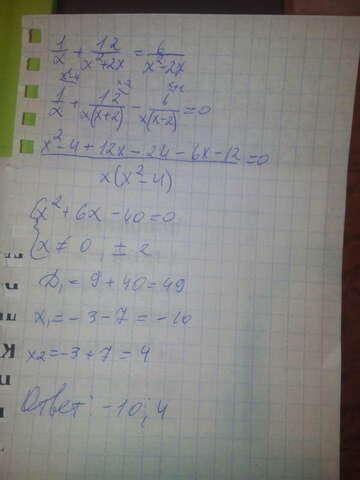 1/x + 12/x²+2x = 6/x²-2x
x²-4 x-2 x+2
1/x + 12/x(x+2) - 6/x(x-2) = 0
x²-4+12x-24-6x-12/x(x²-4) = 0
{x²+6x-40=0
{x≠0, ±2
D₁=9+40=49
x₁=-3-7=-10
x2=-3+7=4
Ответ: -10; 4